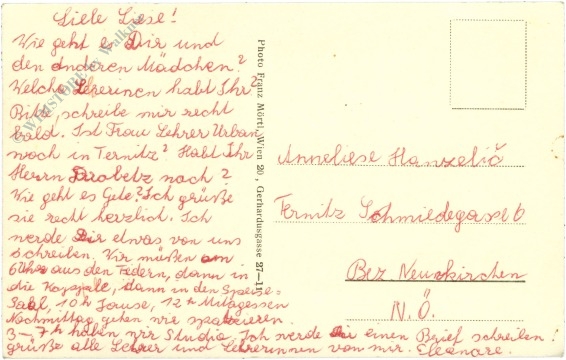 Liebe Liese!
Wie geht es Dir und
den anderen Mädchen?
Welche Lehrerinen habt Ihr?
Bitte, schreibe mir recht
bald. Ist Frau Lehrer Urban
noch in Ternitz? Habt Ihr
Herrn Brobetz noch?
Wie geht es Gete? Ich grüße
sie recht herzlich. Ich
werde Dir etwas von uns
schreiben. Wir müßen um
6 Uhr aus den Federn, dann in
die Kapelle, dann in den Speise-
Saal, 10h Jause, 12h Mitagessen
Nachmittag gehen wie spazieren.
3-7h haben wir Studio. Ich werde Dir einen Brief schreiben!
grüße alle Lehrer und Lehrerinnen von mir. Eleonore
Photo Franz Mörtl, Wien 20, Gerhardusgasse 27-11
Anneliese Hanzelič
Ternitz Schmiedegasse 6
Bez Neunkirchen
N.Ö.